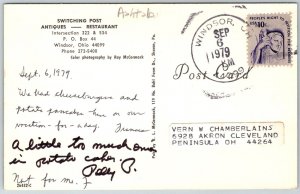 SWITCHING POST
ANTIQUES — RESTAURANT
Intersection 322 & 534
P. O. Box 44
Windsor, Ohio 44099
Phone 272-5400
Color photography by Ray McCormack
Ashtab.
WINDSOR, O
SEP
6
1979
PM
Post Card
PEOPLE'S RIGHT TO
USA 10c
Sept. 6, 1979
We had hamburgers and
potato pancakes here on our
vacation - for a day.
A little too much onion
in potato cakes.
Not for me.
VERN W CHAMBERLAINS
6928 AKRON CLEVELAND
PENINSULA OH 44264